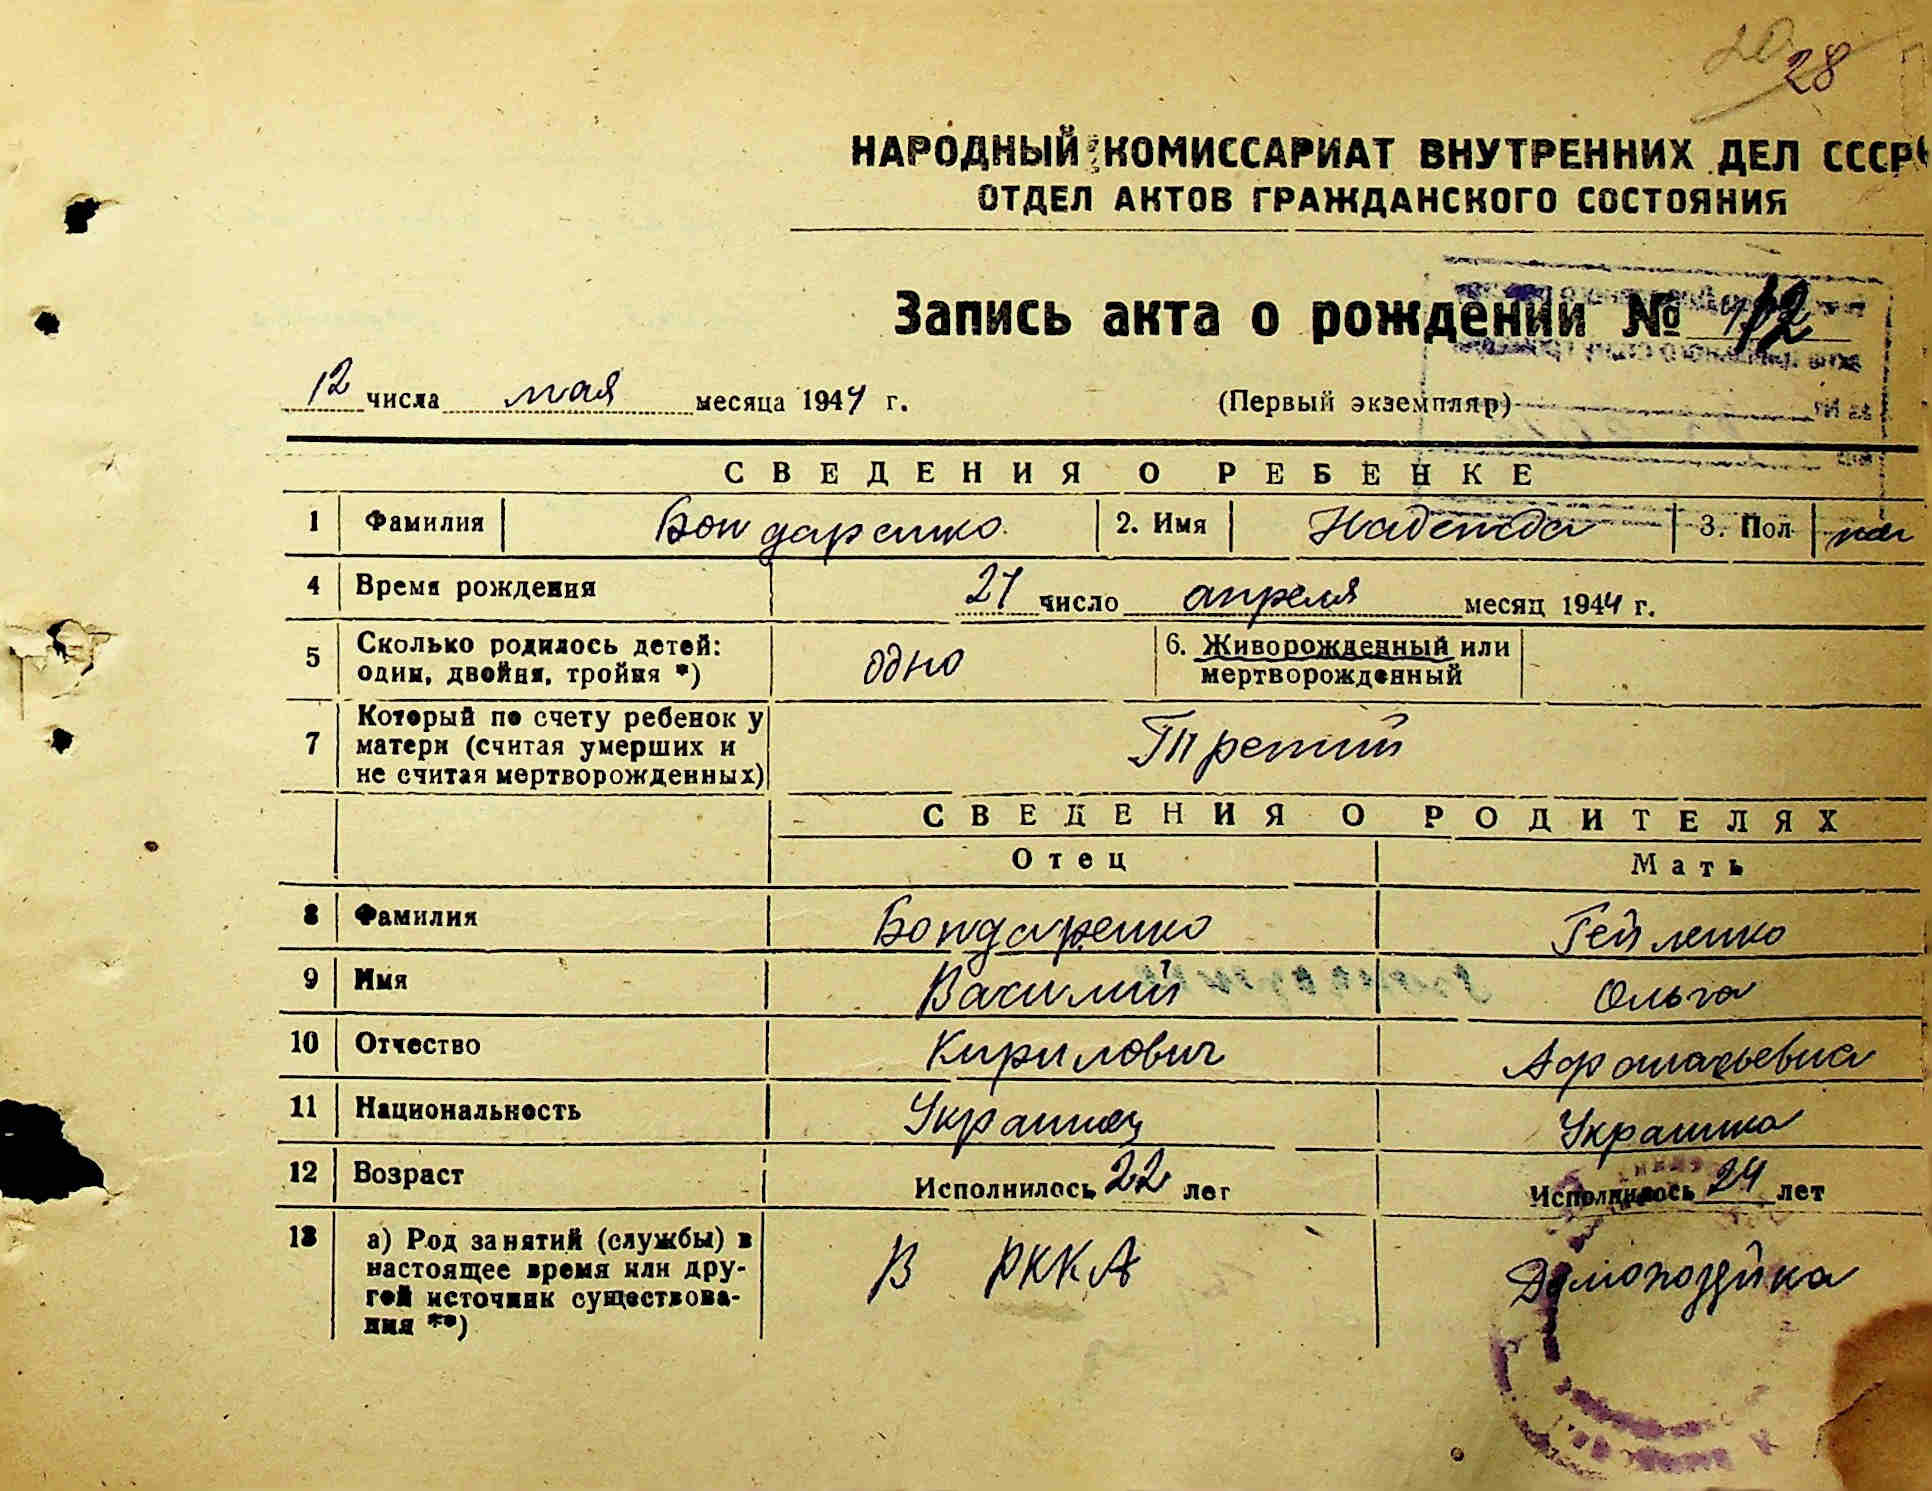 28
НАРОДНЫЙ КОМИССАРИАТ ВНУТРЕННИХ ДЕЛ СССР
ОТДЕЛ АКТОВ ГРАЖДАНСКОГО СОСТОЯНИЯ
Запись акта о рождении № 12
12 числа мая месяца 1944 г. (Первый экземпляр)
СВЕДЕНИЯ О РЕБЕНКЕ
1 Фамилия Бондаренко 2. Имя Надежда 3. Пол жен
4 Время рождения 21 число апреля месяц 1944 г.
5 Сколько родилось детей: один, двойня, тройня *) одно 6. Живорожденный или мертворожденный
7 Который по счету ребенок у матери (считая умерших и не считая мертворожденных) Третий
СВЕДЕНИЯ О РОДИТЕЛЯХ
Отец Мать
8 Фамилия Бондаренко Гейленко
9 Имя Василий Ольга
10 Отчество Кирилович Афонасьевна
11 Национальность Украинец Украинка
12 Возраст Исполнилось 22 лет Исполнилось 24 лет
13 а) Род занятий (службы) в настоящее время или другой источник существования **) В РККА Домохозяйка